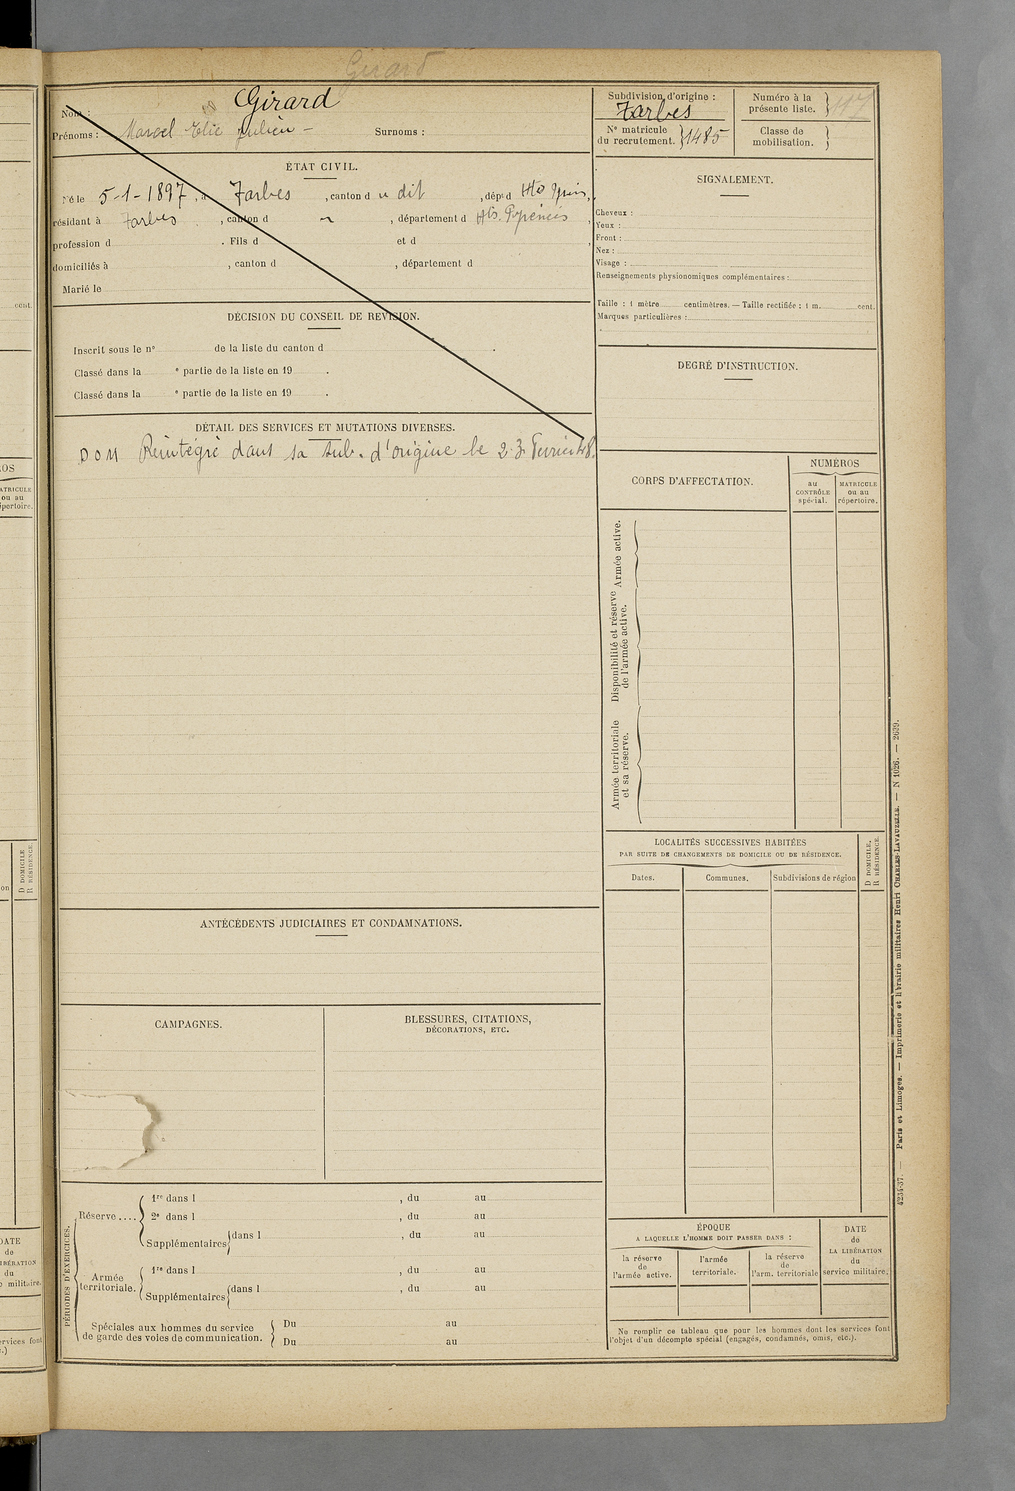 Girard
Nom : Girard
Prénoms : Marcel Elie Julien - Surnoms :
Subdivision d'origine : Tarbes
N° matricule du recrutement. } 1485
Numéro à la présente liste. } 117
Classe de mobilisation. }
ÉTAT CIVIL.
Né le 5-1-1897, à Tarbes, canton d u dit, dépt d
résidant à Tarbes, canton d, département d Htes Pyrénées,
profession d . Fils d et d
domiciliés à , canton d , département d
Marié le
DÉCISION DU CONSEIL DE REVISION.
Inscrit sous le n° de la liste du canton d
Classé dans la e partie de la liste en 19 .
Classé dans la e partie de la liste en 19 .
DÉTAIL DES SERVICES ET MUTATIONS DIVERSES.
DOM Réintégré dans sa sub. d'origine le 23 Février 48.
ANTÉCÉDENTS JUDICIAIRES ET CONDAMNATIONS.
CAMPAGNES.
BLESSURES, CITATIONS,
DÉCORATIONS, ETC.
PÉRIODES D'EXERCICES.
Réserve ....
1re dans l , du au
2e dans l , du au
Supplémentaires dans l , du au
Armée territoriale.
1re dans l , du au
Supplémentaires dans l , du au
Spéciales aux hommes du service
de garde des voies de communication.
Du au
Du au
SIGNALEMENT.
Cheveux :
Yeux :
Front :
Nez :
Visage :
Renseignements physionomiques complémentaires :
Taille : 1 mètre centimètres. — Taille rectifiée : 1 m. cent.
Marques particulières :
DEGRÉ D'INSTRUCTION.
CORPS D'AFFECTATION.
NUMÉROS
au CONTRÔLE spécial.
MATRICULE ou au répertoire.
Armée active.
Disponibilité et réserve de l'armée active.
Armée territoriale et sa réserve.
LOCALITÉS SUCCESSIVES HABITÉES
PAR SUITE DE CHANGEMENTS DE DOMICILE OU DE RÉSIDENCE.
D DOMICILE.
R RÉSIDENCE.
Dates. Communes. Subdivisions de région
ÉPOQUE
A LAQUELLE L'HOMME DOIT PASSER DANS :
la réserve de l'armée active.
l'armée territoriale.
la réserve de l'arm. territoriale
DATE de LA LIBÉRATION du service militaire.
Ne remplir ce tableau que pour les hommes dont les services font
l'objet d'un décompte spécial (engagés, condamnés, omis, etc.).
4234-37. — Paris et Limoges. — Imprimerie et librairie militaires Henri CHARLES-LAVAUZELLE. — N 1026. — 2629.